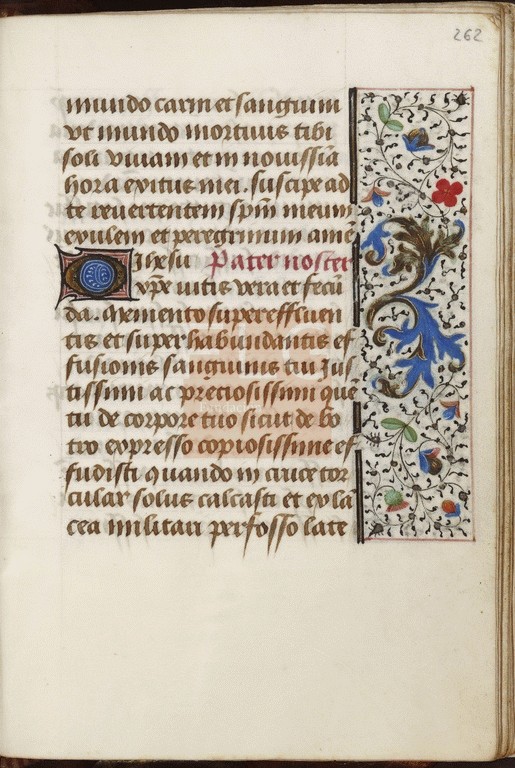 262
mundo carni et sanguini
vt mundo mortuus tibi
soli viuam et in nouissīa
hora exitus mei. suscipe ad
te reuertentem spm̄ meum
exulem et peregrinum amē
O ihesu Pater noster
xp̄e uitis vera et fecū
da. Memento supereffluen
tis et superhabundantis ef
fusionis sanguinis tui Jus
tissimi ac preciosissimi quē
tu de corpore tuo sicut de bo
tro expresso copiosissime ef
fudisti quando in cruce tor
cular solus calcasti et ex lā
cea militari perfosso late